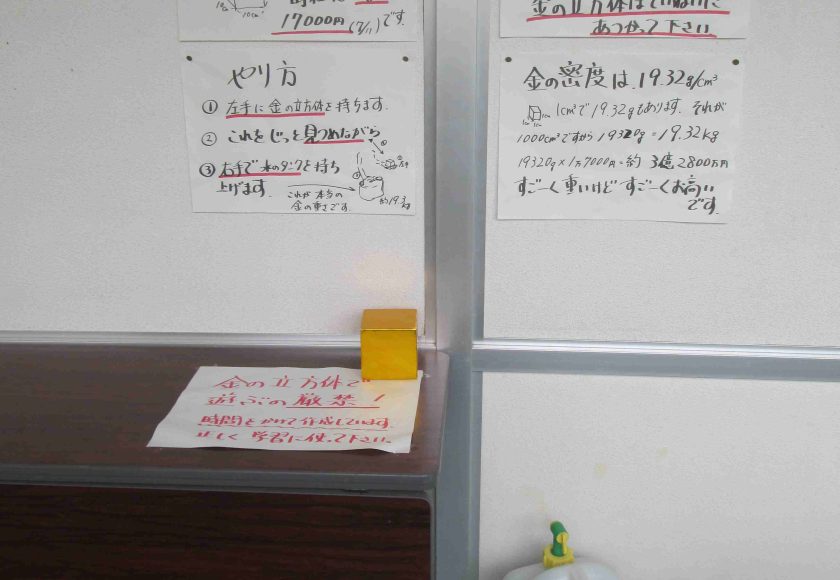 17000円(7/11)です
やり方
① 左手に金の立方体を持ちます.
② これをじっと見つめながら
③ 右手で水のタンクを持ち
上げます.
これが本当の
金の重さです.
約19.3kg
金の立方体はていねいに
あつかって下さい
金の密度は19.32g/cm³
1cm³で19.32gもあります. それが
1000cm³ですから19320g=19.32kg
19320g×1万7000円=約3億2800万円
すごーく重いけどすごーくお高い
です.
金の立方体で
遊ぶの厳禁!
時間をかけて作成しています.
正しく学習に使って下さい.